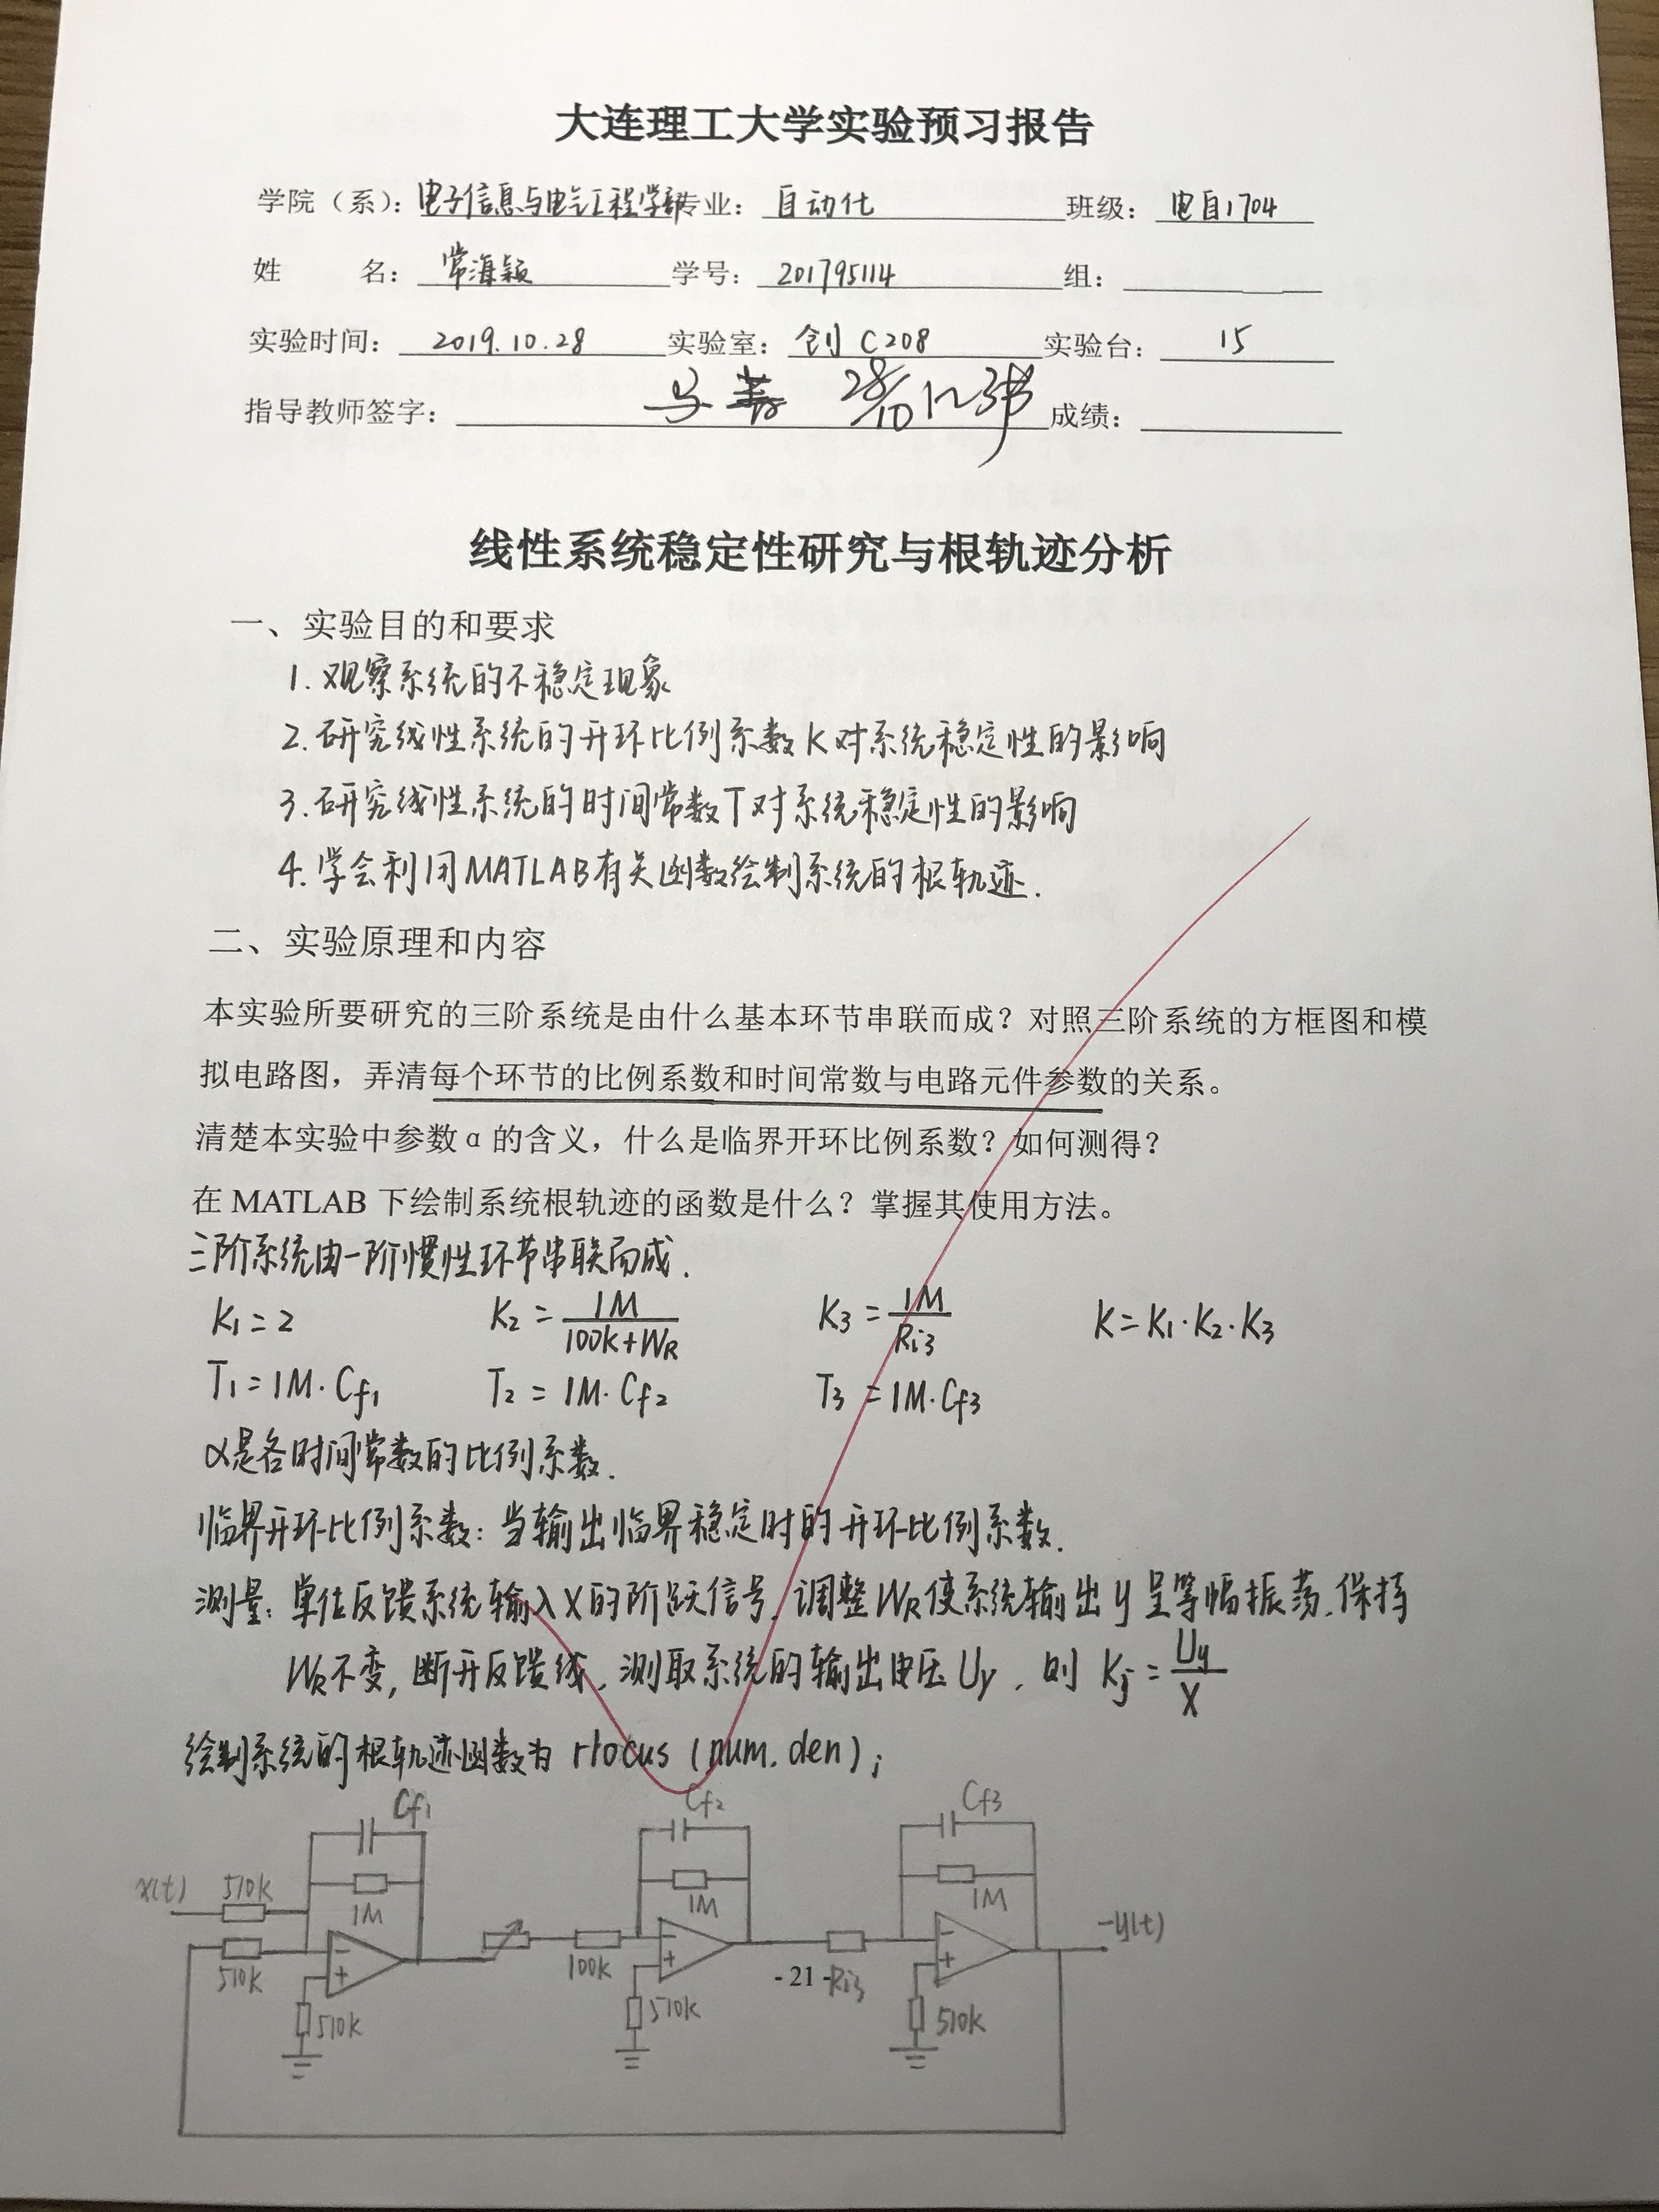 大连理工大学实验预习报告
学院（系）：电子信息与电气工程学部专业：自动化 班级：电自1704
姓 名：常海颖 学号：201795114 组：
实验时间：2019.10.28 实验室：创C208 实验台：15
指导教师签字： 28/10 成绩：
线性系统稳定性研究与根轨迹分析
一、实验目的和要求
1.观察系统的不稳定现象
2.研究线性系统的开环比例系数K对系统稳定性的影响
3.研究线性系统的时间常数T对系统稳定性的影响
4.学会利用MATLAB有关函数绘制系统的根轨迹.
二、实验原理和内容
本实验所要研究的三阶系统是由什么基本环节串联而成？对照三阶系统的方框图和模
拟电路图，弄清每个环节的比例系数和时间常数与电路元件参数的关系。
清楚本实验中参数α的含义，什么是临界开环比例系数？如何测得？
在 MATLAB 下绘制系统根轨迹的函数是什么？掌握其使用方法。
三阶系统由一阶惯性环节串联而成.
K1=2 K2=1M/(100k+WR) K3=1M/Ri3 K=K1·K2·K3
T1=1M·Cf1 T2=1M·Cf2 T3=1M·Cf3
α是各时间常数的比例系数.
临界开环比例系数：当输出临界稳定时的开环比例系数.
测量：单位反馈系统输入X的阶跃信号,调整WR使系统输出y呈等幅振荡.保持
WR不变,断开反馈线,测取系统的输出电压Uy,则Kj=Uy/X
绘制系统的根轨迹函数为rlocus(num.den);
Cf1 Cf2 Cf3
x(t) 510k 1M 1M 1M -y(t)
510k 100k - 21 - Ri3
510k 510k 510k